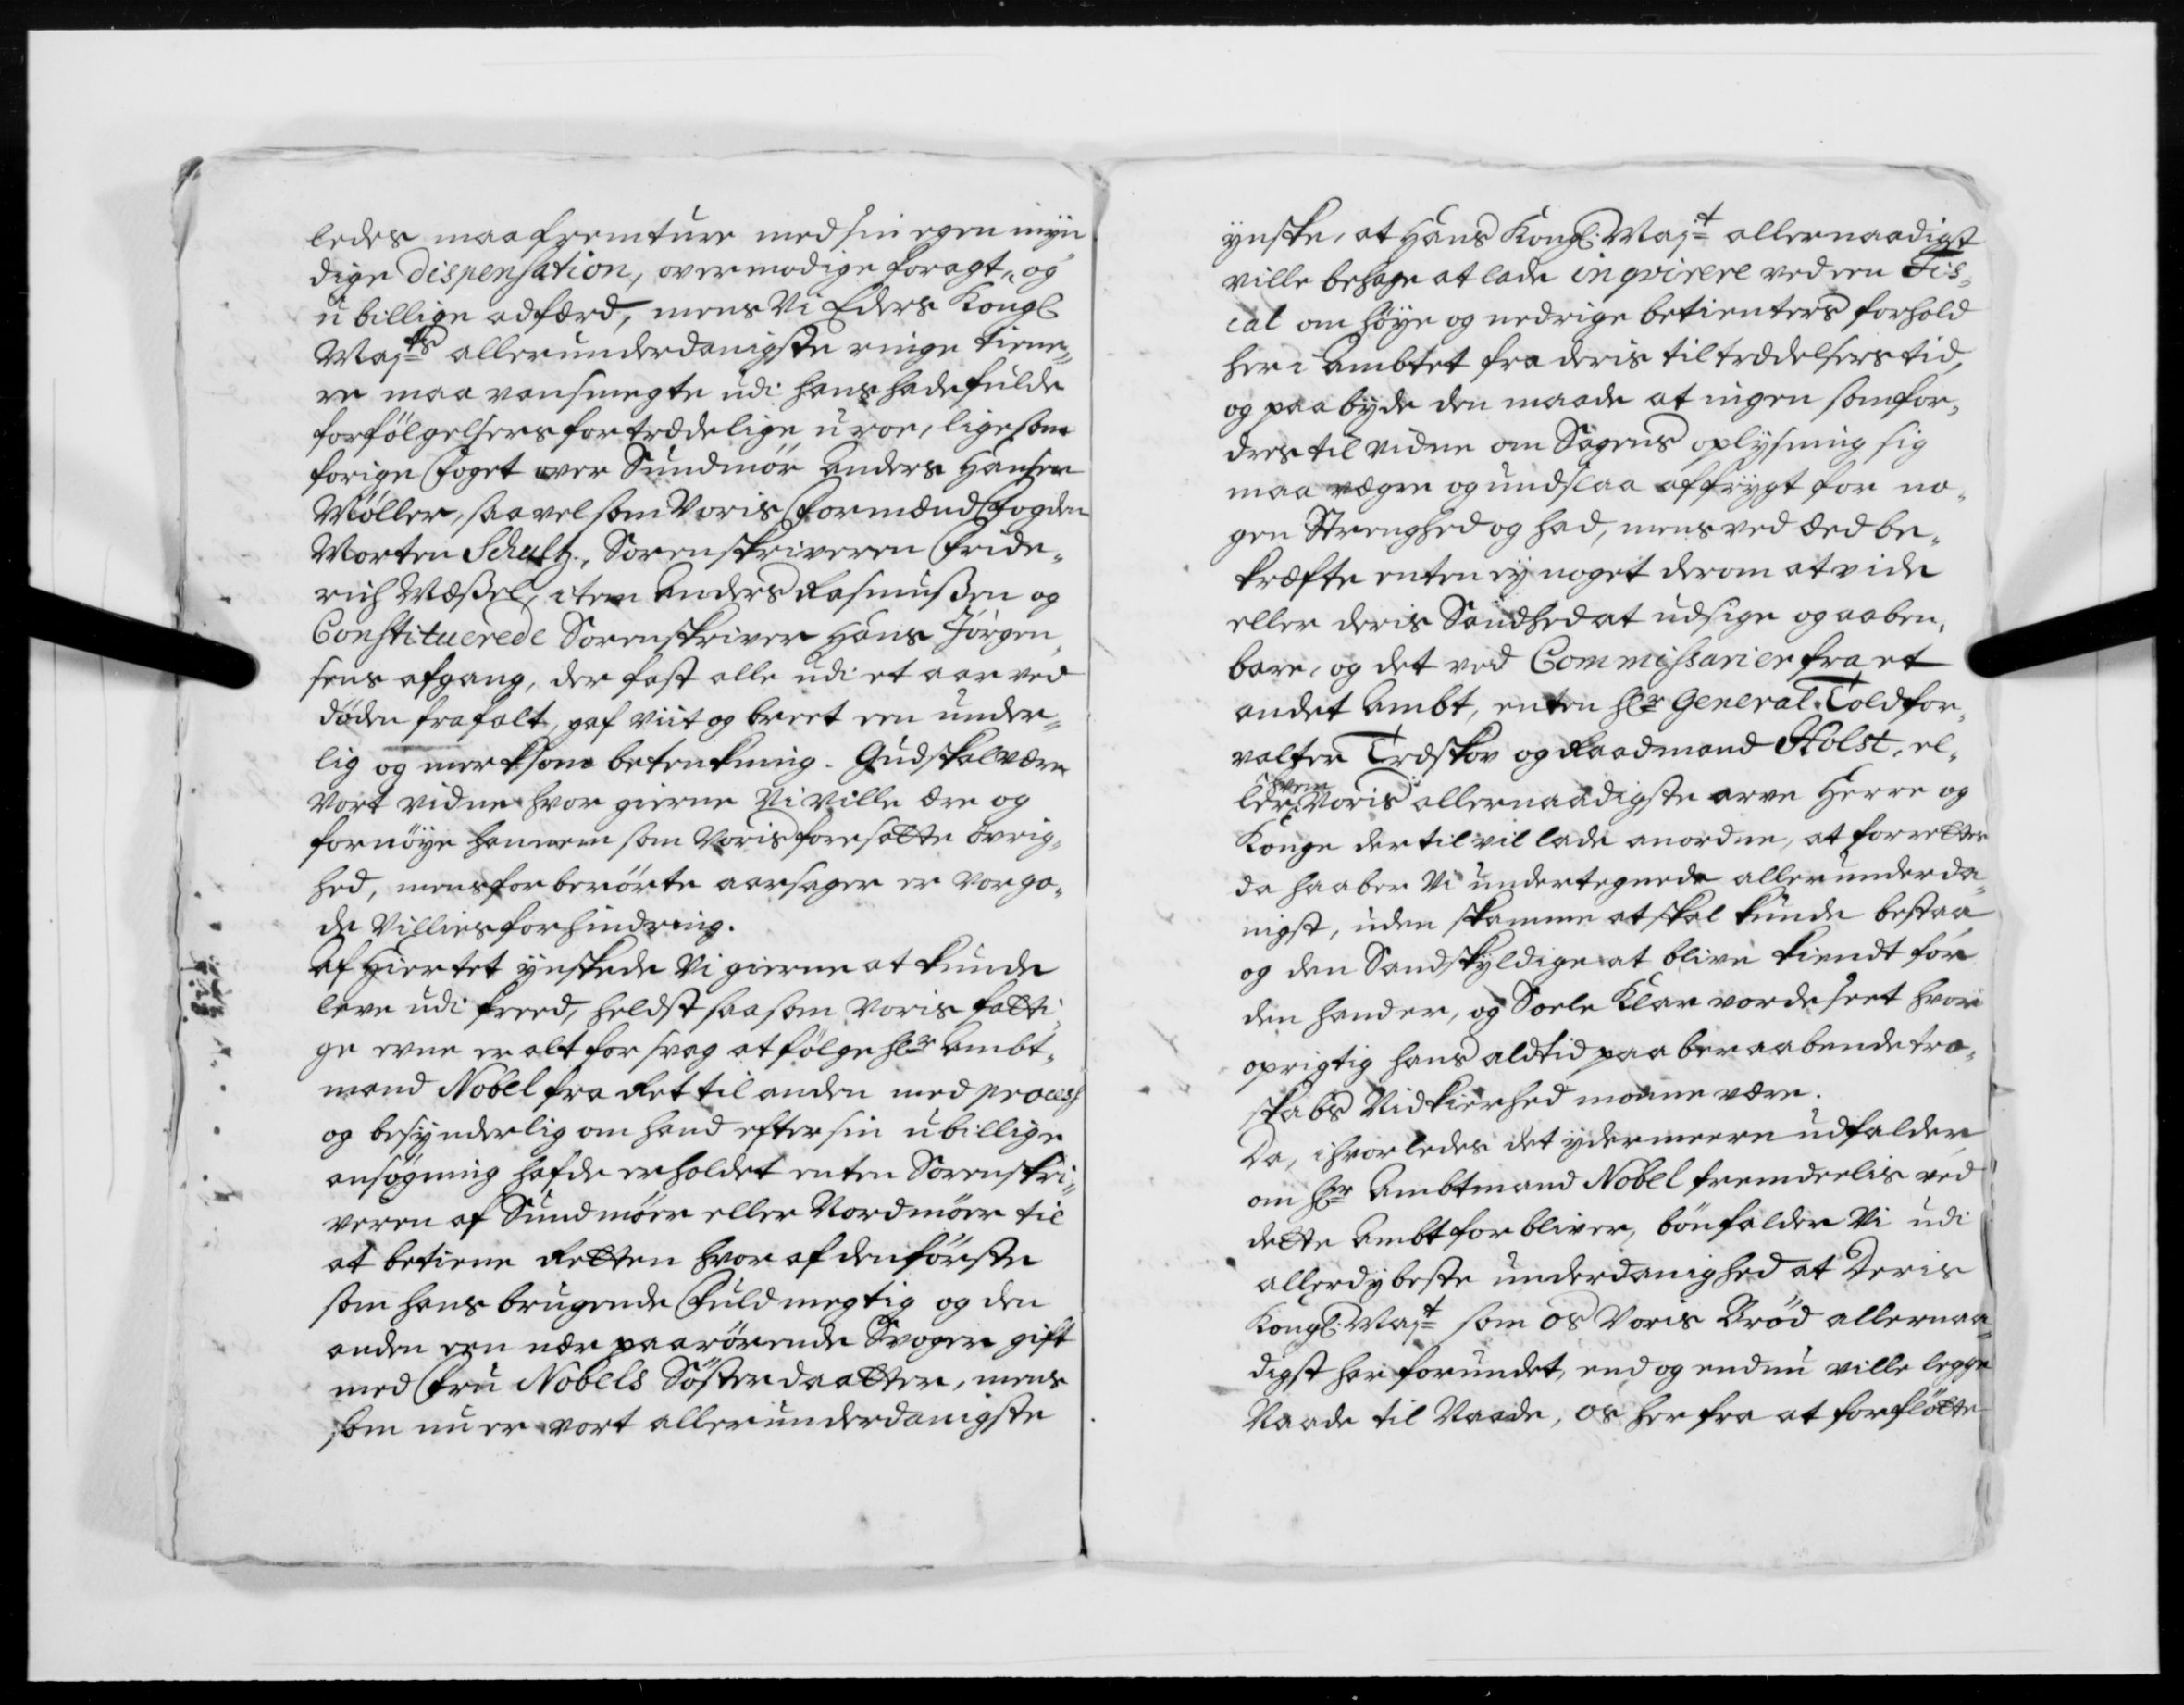 ledes maa fremture med sin egen myn
dige Dispensation, overmodige foragt, og
ubillige adfærd, mens Vi Eders Kongl
Majts allerunderdanigste ringe tiene„
re maa vansmegte udi hans hadefulde
forfölgelsers fortrædelige uroe, ligesom
forige Foget over Sundmör Anders Hansen
Möller, saavelsom Voris Formænd Fogden
Morten Schultz, Sorenskriveren Fride„
rich Weßel, item Anders Rasmußen og
Constituerede Sorenskriver Hans Jörgen„
sens afgang, der fast alle udi et aar ved
döden frafalt, gaf viit og breet een under„
lig og merksom betenkning. Gud skal være
Vort vidne hvor gierne Vi ville ære og
fornöye hannem som Voris foresatte övrig„
hed, mens forberörte aarsager er vor go„
de Villies forhindring.
Af Hiertet ynskede Vi gierne at kunde
leve udi freed, heldst saasom Voris fatti„
ge evne er alt for svag at fölge Hr Ambt„
mand Nobel fra Ret til anden med process
og besynderlig om hand efter sin ubillige
ansögning hafde erholdet enten Sorenskri„
veren af Sundmöer eller Nordmöer til
at betiene Retten hvor af den förste
som hans brugende Fuldmegtig og den
anden een nær paarörende Svoger gift
med Fru Nobels Sösterdaatter, mens
som nu er vort allerunderdanigste
ynske, at Hans Kongl. Majt allernaadigst
ville behage at lade inqvirere ved een Fis„
cal om höye og nedrige betienters forhold
her i Ambtet fra deris tiltrædelsers tid,
og paabyde den maade at ingen som for„
dres til vidne om Sagens oplysning sig
maa vægre og undslaa af frygt for no„
gen Strenghed og had, mens ved Æed be„
kræfte enten ej noget derom at vide
eller deris Sandhed at udsige og aaben„
bare, og det ved Commissarier fra et
andet Ambt, enten Hr General Toldfor„
valter Tredskov og Raadmand Holst, el„
ler hvem Voris allernaadigste arve Herre og
Konge dertil vil lade anordne, at forrettes
da haaber Vi undertegnede allerunderda„
nigst, uden skamme at skal kunde bestaa
og den Sandskyldige at blive kiendt for
den hand er, og Soele Klar vorde seet hvor
oprigtig hans aldtid paaberaabende troe„
skabs Vidkierhed monne være.
Da, ihvorledes det ydermeere udfalder
om Hr Ambtmand Nobel fremdelis ved
dette Ambt forbliver, bönfalder Vi udi
allerdybeste underdanighed at Deris
Kongl. Majt som os Voris Bröd allernaa„
digst har forundet, end og endnu ville legge
Naade til Naade, os her fra at forflötte